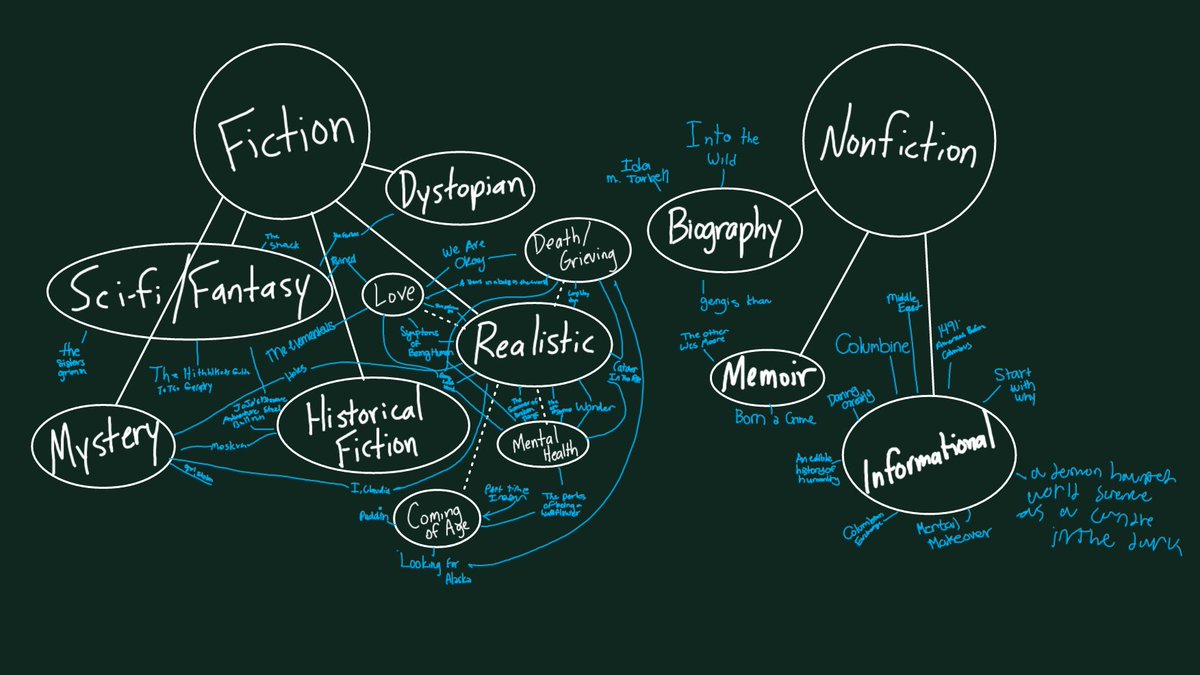 Fiction
Dystopian
Sci-fi/Fantasy
The
Shack
Buried
the
Sisters
grimm
Mystery
Historical
Fiction
Holes
I, Claudia
Love
We Are
Okay
Death/
Grieving
Symptoms
of
Being Human
Realistic
Catcher
In The Rye
Wonder
Mental
Health
The perks
of being a
wallflower
Part time
Indian
Puddin
Coming
of Age
Looking For
Alaska
Nonfiction
Into the
Wild
Ida
M. Tarbell
Biography
gengis khan
The other
Wes Moore
Memoir
Born a Crime
Middle
East
Columbine
1491:
Americas Before
Columbus
Start
with
why
Daring
Greatly
Informational
An edible
history of
humanity
Columbian
Exchange
Mental
Makeover
a demon haunted
world science
as a candle
in the dark